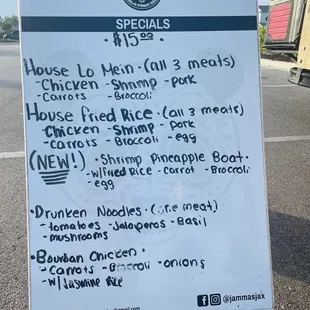 SPECIALS
• $15.00 •
House Lo Mein • (all 3 meats)
- Chicken - Shrimp - pork
- Carrots - Broccoli
House fried Rice • (all 3 meats)
- Chicken - Shrimp - Pork
- Carrots - Broccoli - egg
(NEW!) • Shrimp Pineapple Boat •
- w/fried Rice - Carrot - Broccoli
- egg
• Drunken Noodles • (one meat)
- tomatoes - Jalapeños - Basil
- mushrooms
• Bourbon Chicken •
- Carrots - Broccoli - onions
- w/ Jasmine Rice
@jammasjax